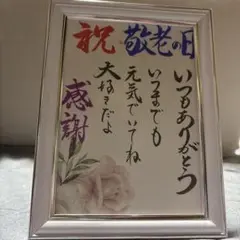 祝 敬老の日
いつもありがとう
いつまでも
元気でいてね
大好きだよ
感謝